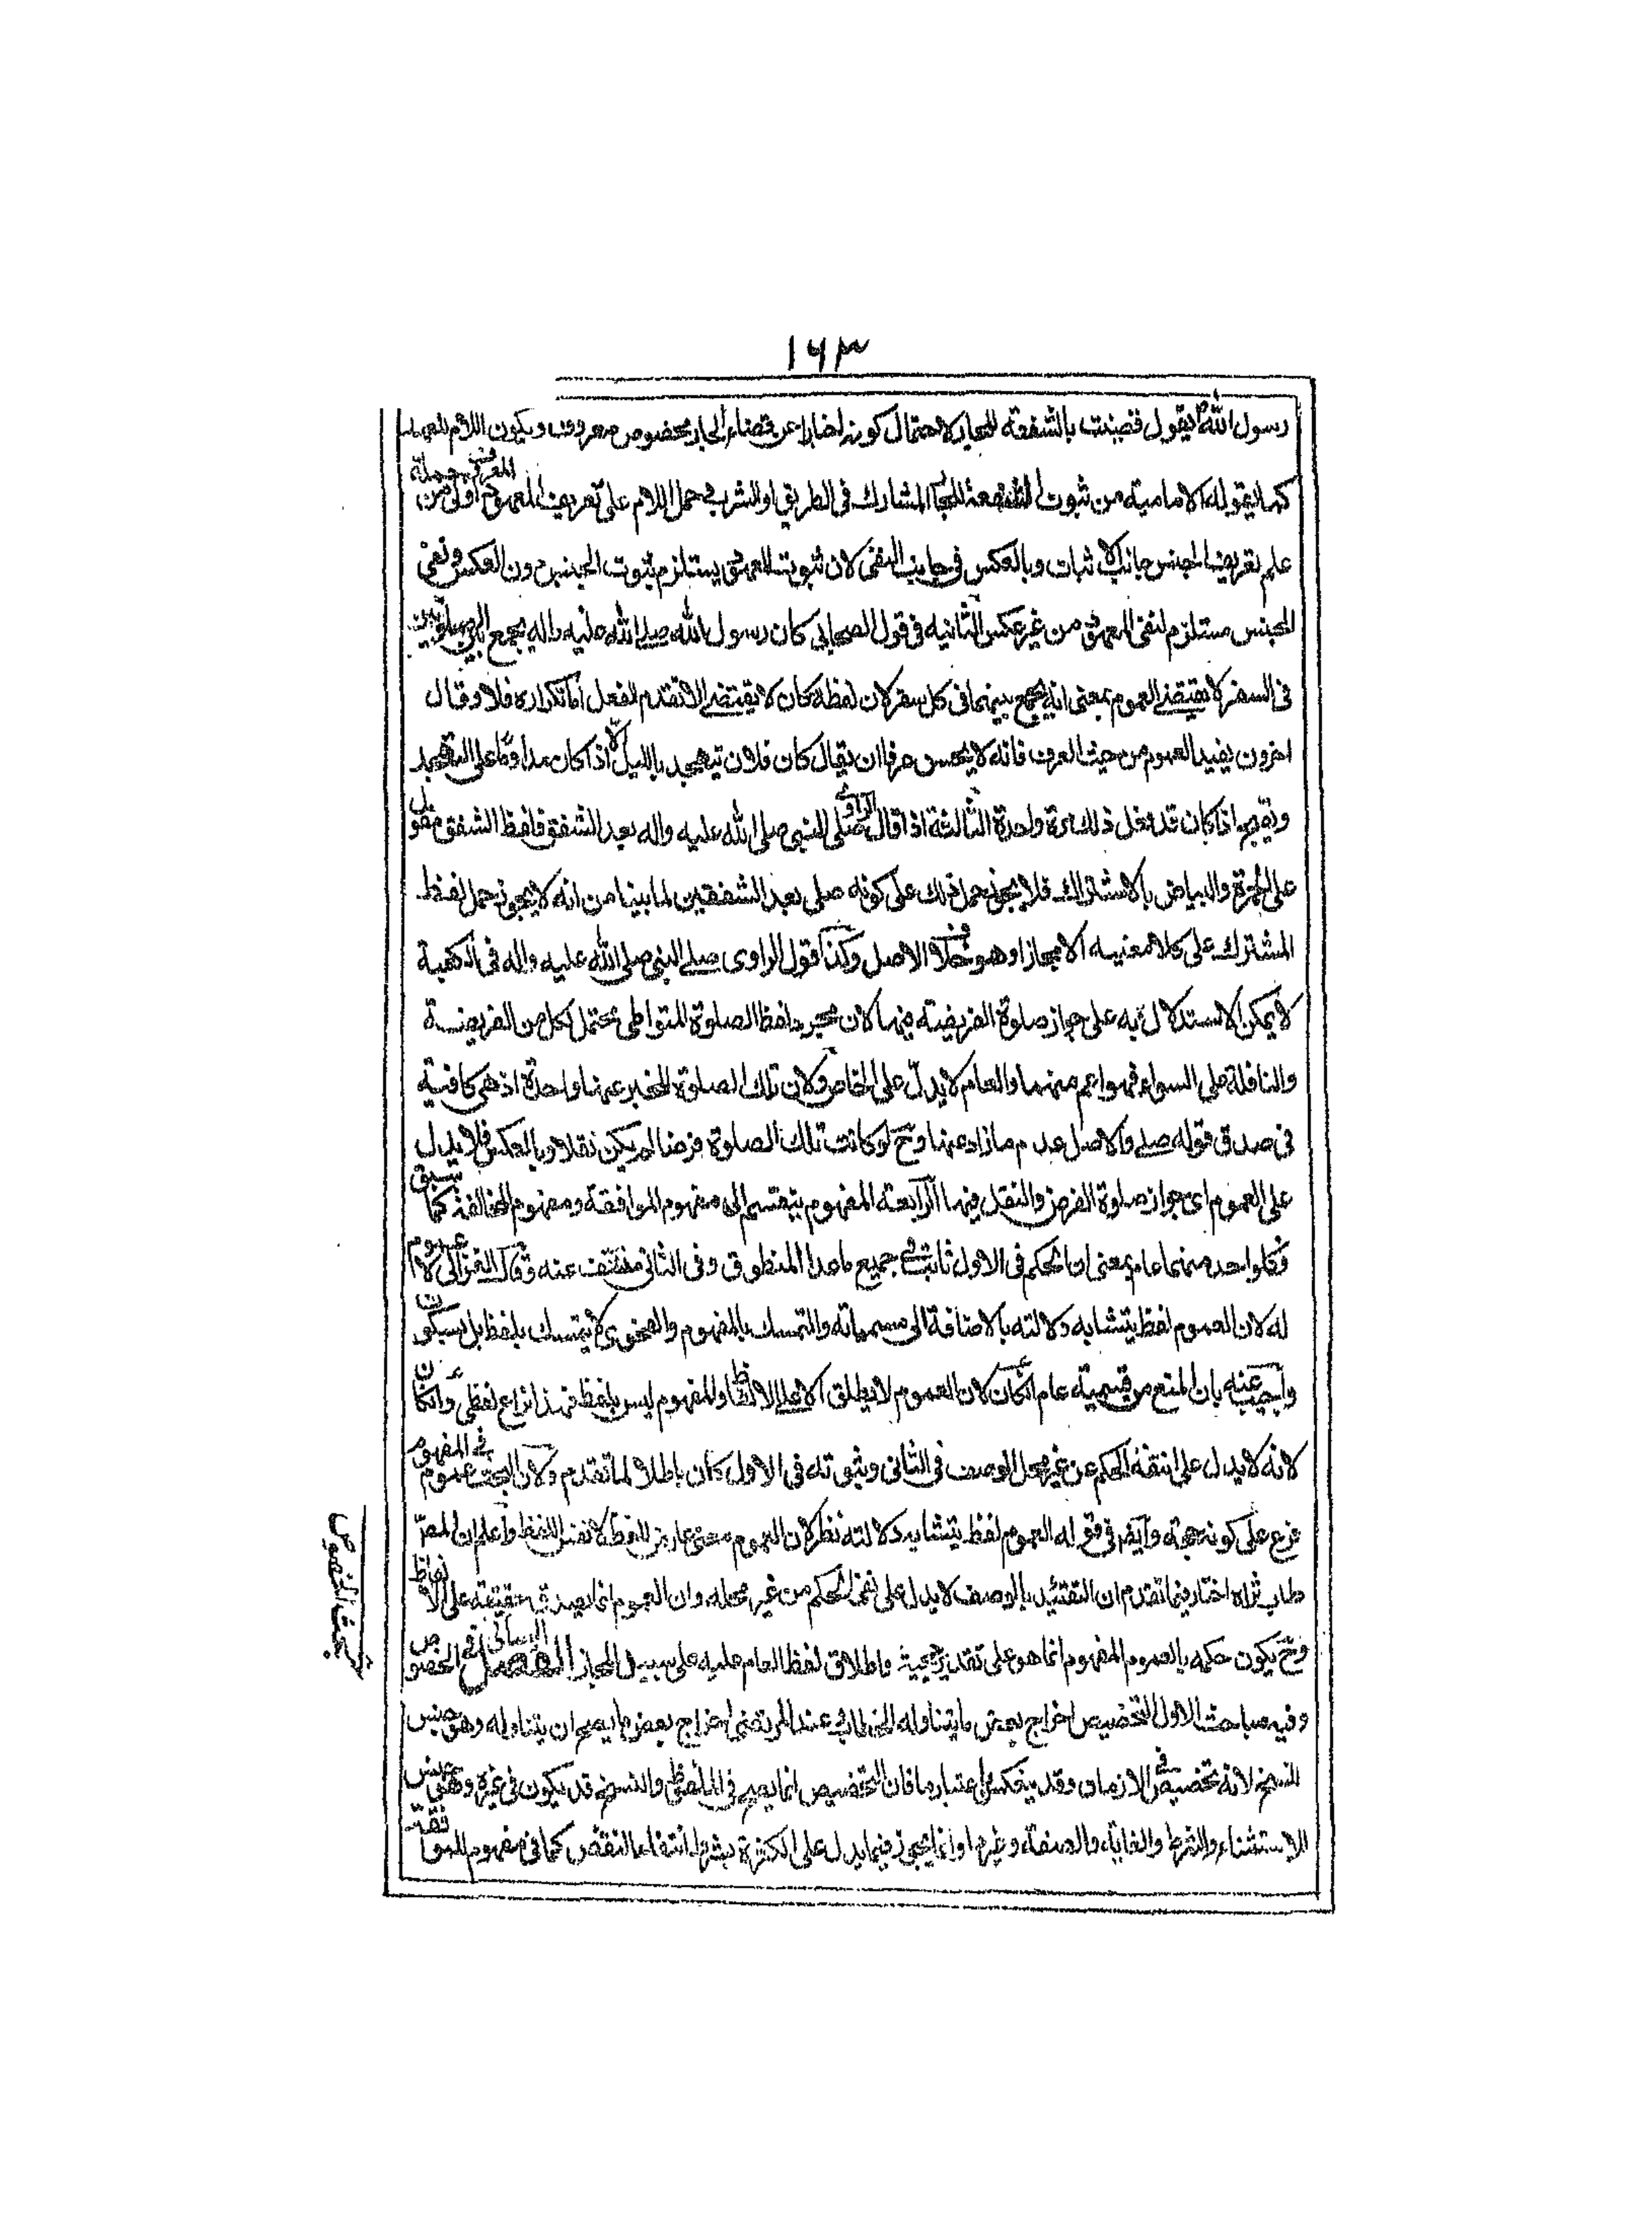 ١٦٣
رسول الله ص يقول قضيت بالشفعة للجار لاحتمال كونه اخبارا عن قضاء لجار مخصوص معروف ويكون اللام للعهد
كما يقوله الامامية من ثبوت الشفعة للجار المشارك فى الطريق او الشرب حمل اللام على تعريف المعهود اولى من حمله
على تعريف الجنس جانب الاثبات وبالعكس فى جانب النفى لان ثبوت المعهود يستلزم ثبوت الجنس دون العكس ونفى
الجنس مستلزم لنفى المعهود من غير عكس الثانية فى قول الصحابى كان رسول الله صلى الله عليه واله يجمع بين الصلوتين
فى السفر لا يقتضى العموم بمعنى انه يجمع بينهما فى كل سفر لان لفظة كان لا يقتضى الا تقدم الفعل اما تكراره فلا وقال
اخرون يفيد العموم من حيث العرف فانه لا يحسن عرفا ان يقال كان فلان يتهجد بالليل الا اذا كان مداوما على التهجد
ويقبح اذا كان قد فعل ذلك مرة واحدة الثالثة اذا قال الراوى صلى النبى صلى الله عليه واله بعد الشفق فلفظ الشفق مقول
على الحمرة والبياض بالاشتراك فلا يجوز حمل ذلك على كونه صلى بعد الشفقين لما بينا من انه لا يجوز حمل لفظ
المشترك على كلا معنييه الا مجازا وهو خلاف الاصل وكذا قول الراوى صلى النبى صلى الله عليه واله فى الكعبة
لا يمكن الاستدلال به على جواز صلوة الفريضة فيها لان مجرد لفظ الصلوة المتواطى محتمل لكل من الفريضة
والنافلة على السواء فهو اعم منهما والعام لا يدل على الخاص ولان تلك الصلوة المخبر عنها واحدة اذ هى كافية
فى صدق قوله صلى والاصل عدم ما زاد عنها وح لو كانت تلك الصلوة فرضا لم يكن نفلا وبالعكس فلا يدل
على العموم اى جواز صلوة الفرض والنفل فيها الرابعة المفهوم ينقسم الى مفهوم الموافقة ومفهوم المخالفة كما سبق
فكل واحد منهما عام بمعنى ان الحكم فى الاول ثابت فى جميع ما عدا المنطوق وفى الثانى منتف عنه وقال الغزالى لا عموم
له لان العموم لفظ يتشابه دلالته بالاضافة الى مسمياته والتمسك بالمفهوم والفحوى لا يتمسك بلفظ بل بسكوت
واجيب عنه بان المنع من تسمية عام ان كان لان العموم لا يطلق الا على الالفاظ والمفهوم ليس بلفظ فهذا نزاع لفظى وان كان
لانه لا يدل على انتفاء الحكم عن غير محل الوصف فى الثانى وثبوته فى الاول كان باطلا لما تقدم ولان البحث عموم فى المفهوم
فرع على كونه حجة وايضا فى قوله العموم لفظ يتشابه دلالته نظر لان العموم معنى عارض للفظ لا نفس اللفظ واعلم ان المصر
طاب ثراه اختار فيما تقدم ان التقييد بالوصف لا يدل على نفى الحكم من غير محله وان العموم انما يصدق حقيقة على الالفاظ
وح يكون حكمه بالعموم المفهوم انما هو على تقدير حجيته واطلاق لفظ العام عليه على سبيل المجاز الفصل الثانى فى الخصوص
وفيه مباحث الاول التخصيص اخراج بعض ما يتناوله الخطاب عند المرتضى اخراج بعض ما يصح ان يتناوله وهو جنس
للنسخ لانه تخصيص فى الازمان وقد ينعكس باعتبار ما فان التخصيص انما يصح فى الملفوظ والنسخ قد يكون فى غيره وهو جنس
الاستثناء والشرط والغاية والصفة وغيرها وانما يجوز فيما يدل على الكثرة بشرط انتفاء النقض كما فى مفهوم الموافقة
مبحث الخصوص